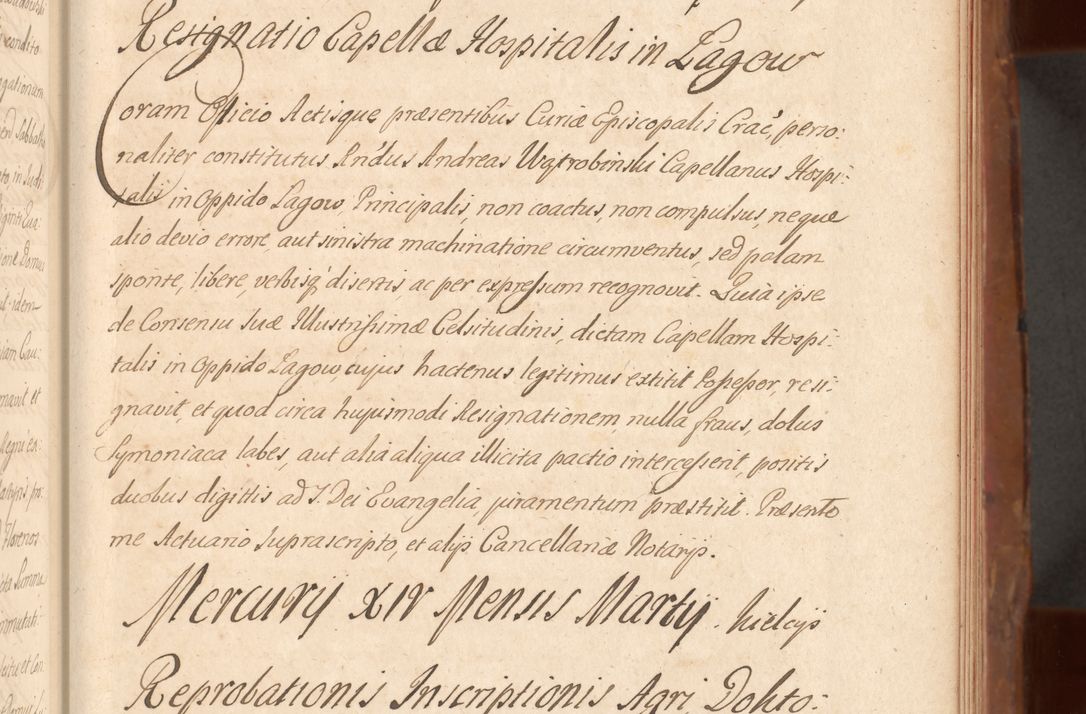 Resignatio Capellæ Hospitalis in Łagow
Coram Officio Actisque præsentibus Curiæ Episcopalis Crac, perso:
naliter constitutus Andus Andreas Capellanus Hospi:
talis in Oppido Łagow, Principalis, non coactus, non compulsus, neque
alio devio errore aut sinistra machinatione circumventus, sed palam
sponte, libere, verbisq disertis, ac per expressum recognovit. Quia ipse
de Consensu Suæ Illustrissimæ Celsitudinis, dictam Capellam Hospi:
talis in Oppido Łagow, cujus hactenus legitimus extitit Possessor, resi:
gnavit, et quod circa hujusmodi Resignationem nulla fraus, dolus
Symoniaca labes, aut alia aliqua illicita pactio intercesserit, positis
duobus digittis ad S. Dei Evangelia, juramentum præstitit. Præsente
me Actuario Suprascripto, et alijs Cancellariæ Notarijs.
Mercurij XIV Mensis Martij. Kielcijs
Reprobationis Inscriptionis Agri Dokto: